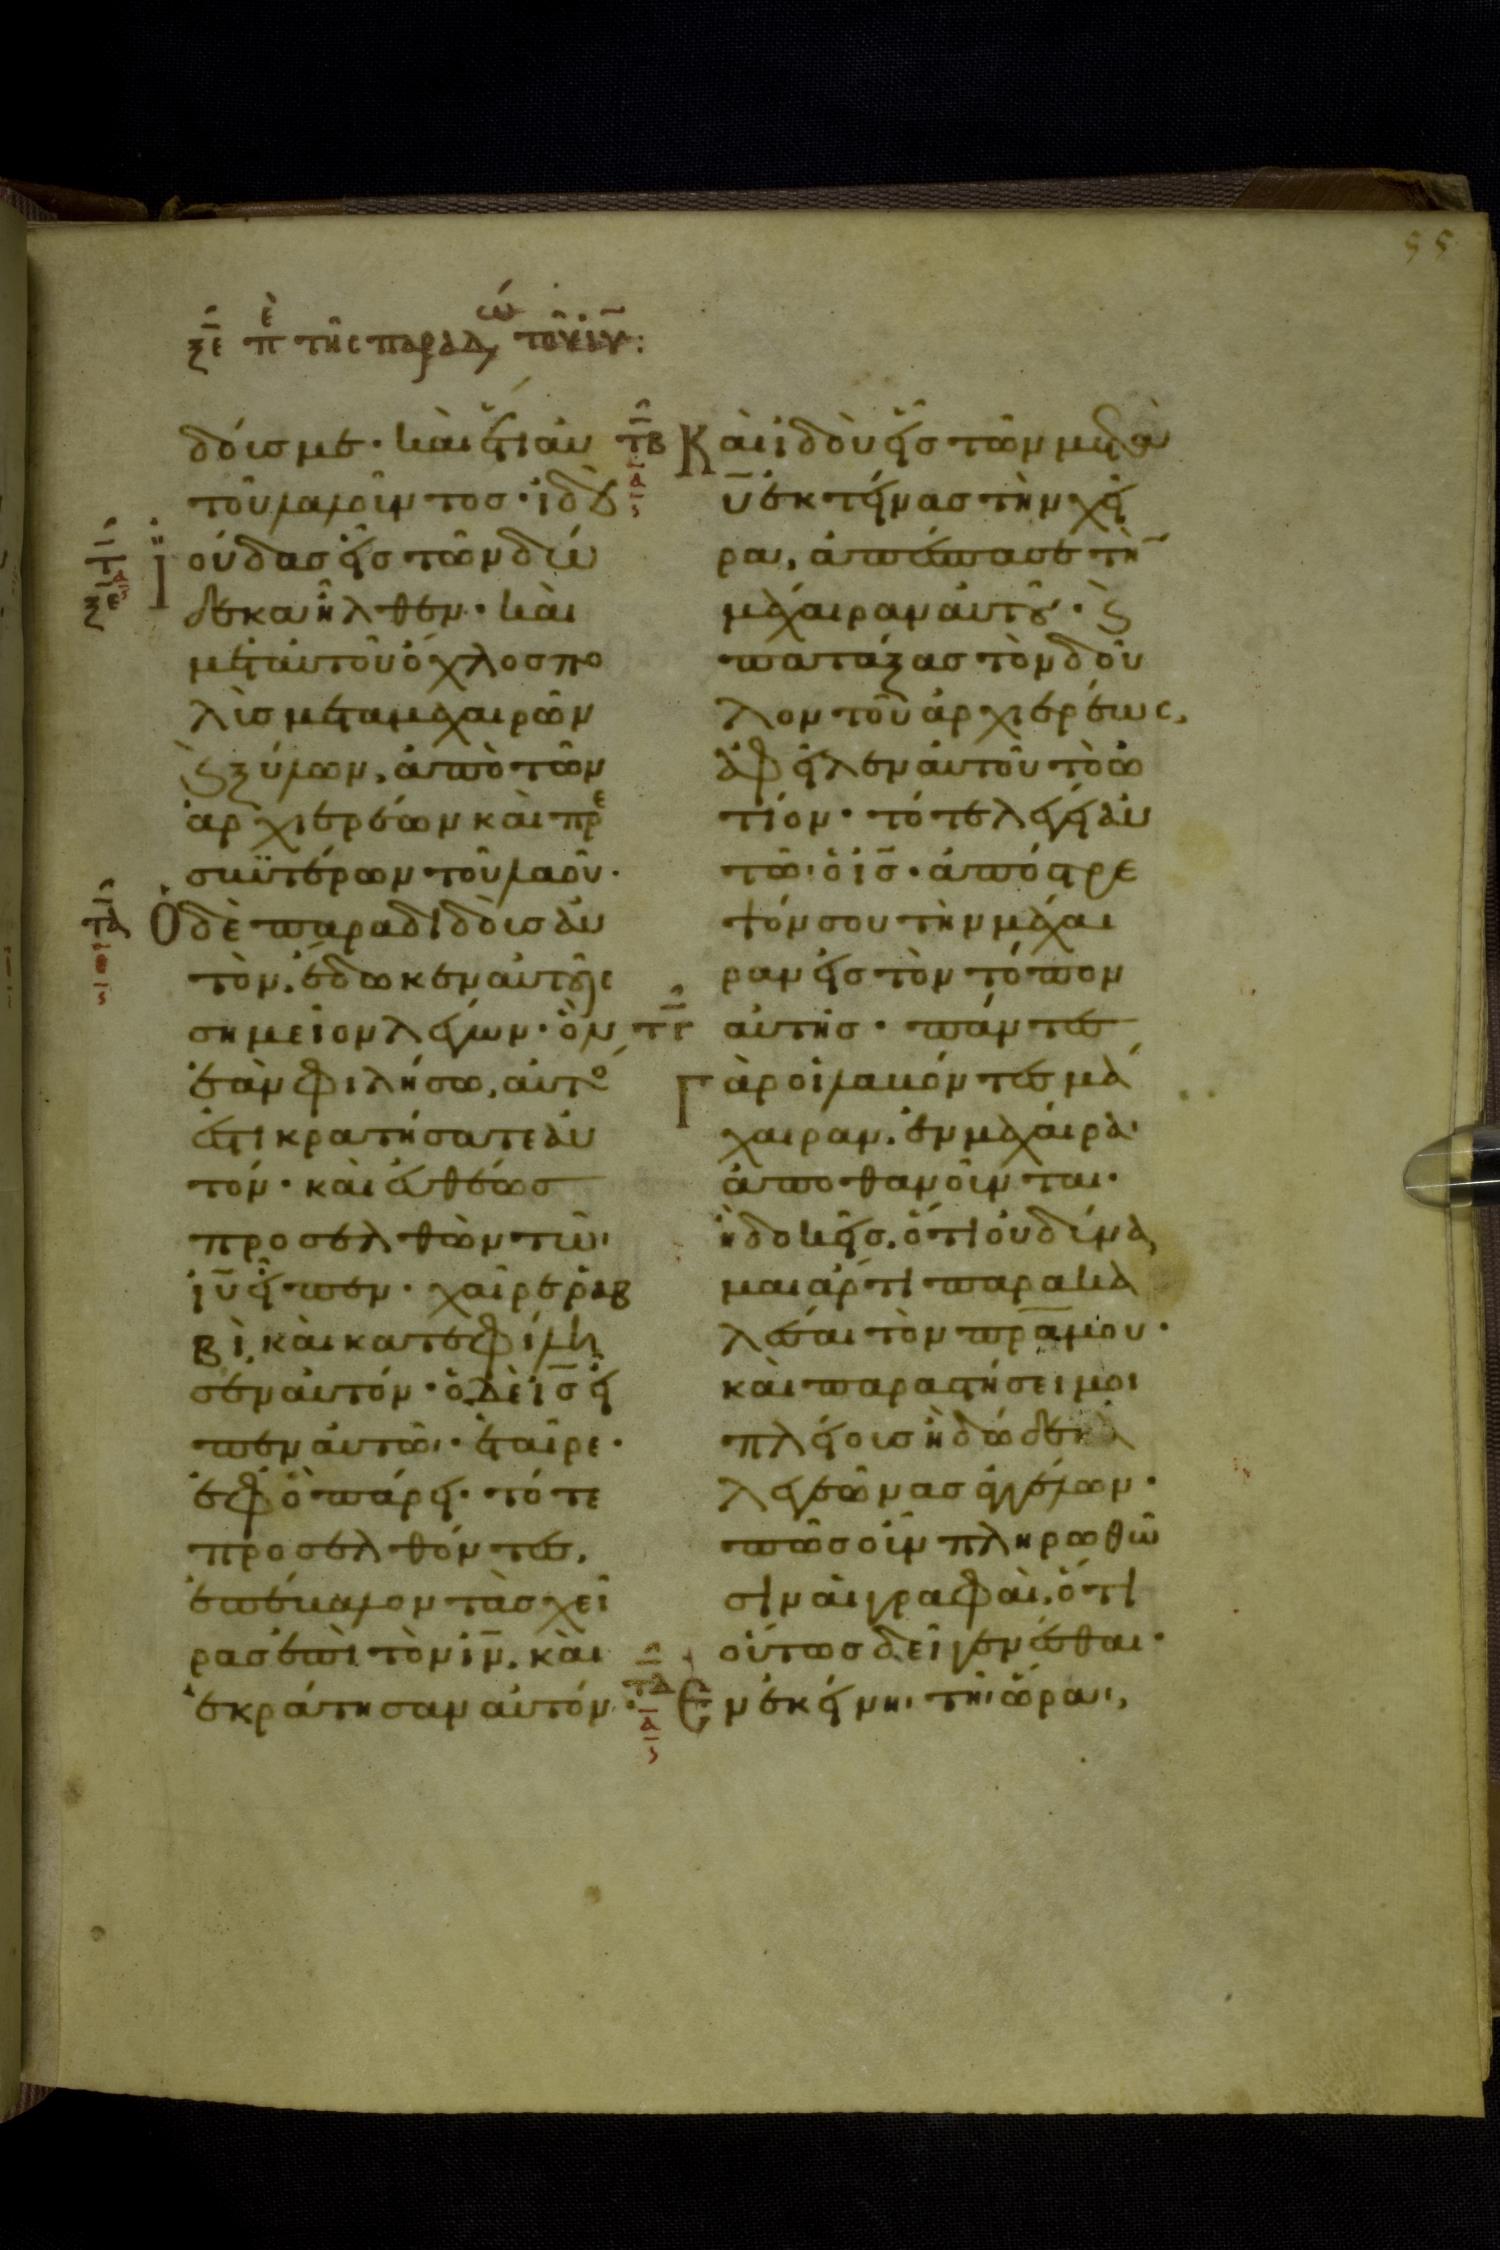 55
ξε πε τῆς παραδώ τοῦ ιυ:
δούς με· καὶ ἔτι αὐ
τοῦ λαλοῦντος· ἰδοὺ
τ
ξε
Ϊούδας εἷς τῶν δώ
δεκα ἦλθεν· καὶ
μετ' αὐτοῦ ὄχλος πο
λὺς μετὰ μαχαιρῶν
ϗ ξύλων, ἀπὸ τῶν
ἀρχιερέων καὶ πρε
σβϋτέρων τοῦ λαοῦ·
τα
Ὁ δὲ παραδιδοὺς αὐ
τὸν, ἔδωκεν αὐτοῖς
σημεῖον λέγων· ὃν
ἐὰν φιλήσω, αὐτό
ἐστι κρατήσατε αὐ
τόν· καὶ εὐθέως
προσελθὼν τῶι
ιυ εἶπεν· χαῖρε ῥαβ
βὶ, καὶ κατεφίλη
σεν αὐτόν· ὁ δὲ ις εἶ
πεν αὐτῶι· ἑταῖρε·
ἐφ' ὃ πάρει· τότε
προσελθόντες,
ἐπέβαλον τὰς χεῖ
ρας ἐπὶ τὸν ιν, καὶ
ἐκράτησαν αὐτόν·
τβ
α
ς
Καὶ ἰδοὺ εἷς τῶν μετὰ
ιυ ἐκτείνας τὴν χεῖ
ρα, ἀπέσπασε τὴν
μάχαιραν αὐτοῦ· ϗ
πατάξας τὸν δοῦ
λον τοῦ ἀρχιερέως,
ἀφεῖλεν αὐτοῦ τὸ ὠ
τίον· τότε λέγει αὐ
τῶι ὁ ις· ἀπόστρε
ψόν σου τὴν μάχαι
ραν εἰς τὸν τόπον
τγ
αὐτῆς· πάντες
Γὰρ οἱ λαβόντες μά
χαιραν, ἐν μαχαίρα
ἀποθανοῦνται·
ἢ δοκεῖς, ὅτι οὐ δύνα
μαι ἄρτι παρακα
λέσαι τὸν πρα μου·
καὶ παραστήσει μοι
πλείους ἢ δώδεκα
λεγεῶνας ἀγγέλων·
πῶς οὖν πληρωθῶ
σιν αἱ γραφαὶ, ὅτι
οὕτως δεῖ γενέσθαι·
τδ
α
ς
Ἐν ἐκείνηι τῆι ὥραι,